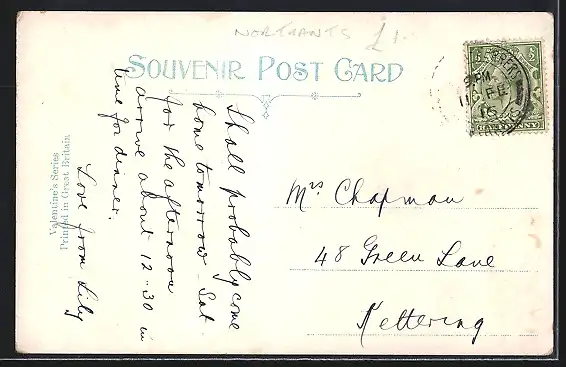 NORTHANTS £1
SOUVENIR POST CARD
Valentine's Series
Printed in Great Britain
Shall probably come
home tomorrow - Sat
for the afternoon
arrive about 12-30 in
time for dinner.
Love from Lily
Mrs Chapman
48 Green Lane
Kettering
PM
11 FE
15
HALFPENNY